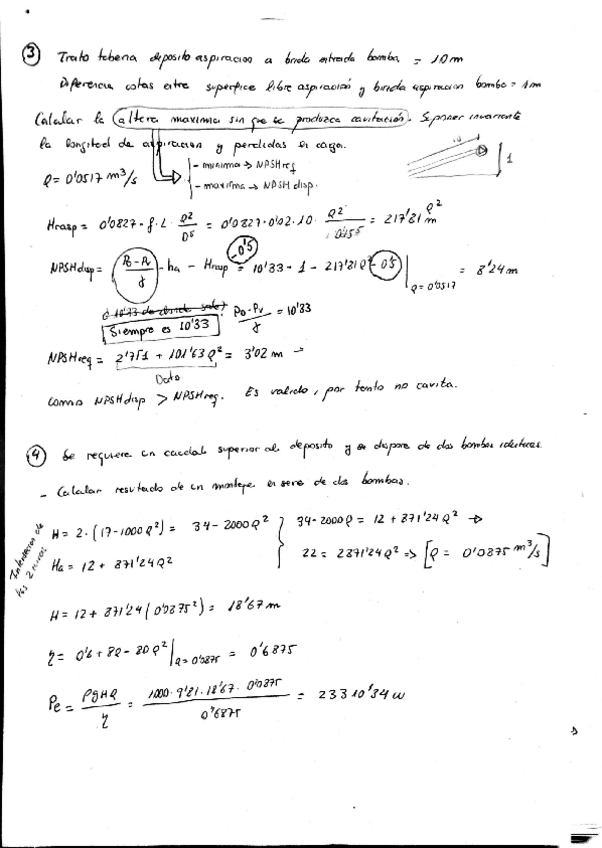 ③ Trato tuberia deposito aspiracion a brida entrada bomba = 10m
Diferencia cotas entre superficie libre aspiración y brida aspiracion bomba = 1m
Calcular la altura maxima sin que se produzca cavitación. Suponer invariante
la longitud de aspiracion y perdidas de carga.
10
1
- minima → NPSHreq
- maxima → NPSH disp.
Q = 0'0517 m³/s
Hrasp = 0'0827 · f · L · Q²/D⁵ = 0'0827 · 0'02 · 10 · Q²/0'155⁵ = 217'81 Q² m
- 0'5
NPSHdisp = (Po - Pv)/γ - ha - Hrasp = 10'33 - 1 - 217'81 Q² - 0'5 | Q = 0'0517 = 8'24m
Siempre es 10'33
Po-Pv/γ = 10'33
NPSHreq = 2'751 + 101'63 Q² = 3'02 m →
Dato
como NPSHdisp > NPSHreq. Es valido, por tanto no cavita.
④ Se requiere un caudal superior al deposito y se dispone de dos bombas identicas.
- Calcular resultado de un montaje en serie de dos bombas.
Interseccion de las 2 curvas
H = 2 · (17-1000Q²) = 34-2000Q²
34-2000Q = 12 + 871'24Q² →
Ha = 12 + 871'24Q²
22 = 2871'24Q² => [Q = 0'0875 m³/s]
H = 12 + 871'24 (0'0875²) = 18'67 m
η = 0'6 + 8Q - 80Q² | Q = 0'0875 = 0'6875
Pe = ρgHQ/η = 1000 · 9'81 · 18'67 · 0'0875 / 0'6875 = 23310'34 w